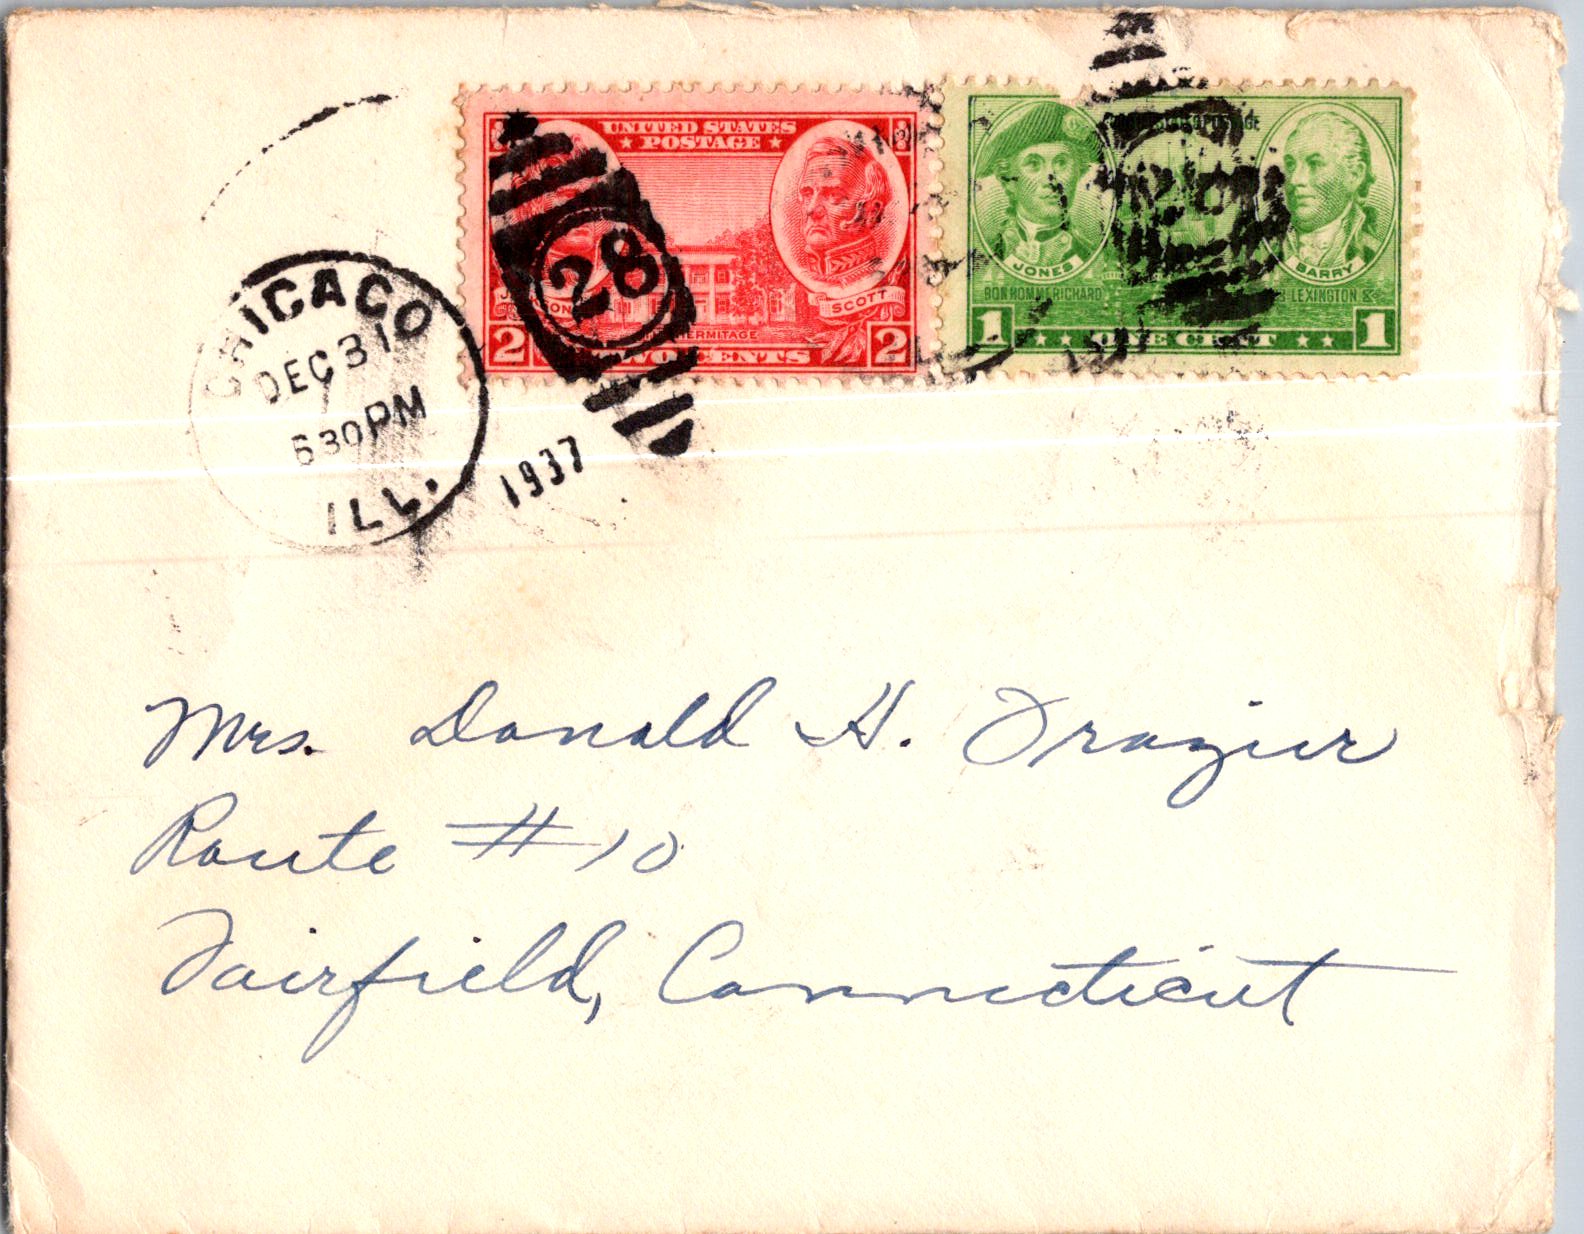 CHICAGO
DEC 31
630PM
ILL.
1937
28
UNITED STATES
POSTAGE
SCOTT
HERMITAGE
2 2
JONES
BARRY
BON HOMME RICHARD
LEXINGTON
1 ONE CENT 1
Mrs. Donald H. Frazier
Route #10
Fairfield, Connecticut